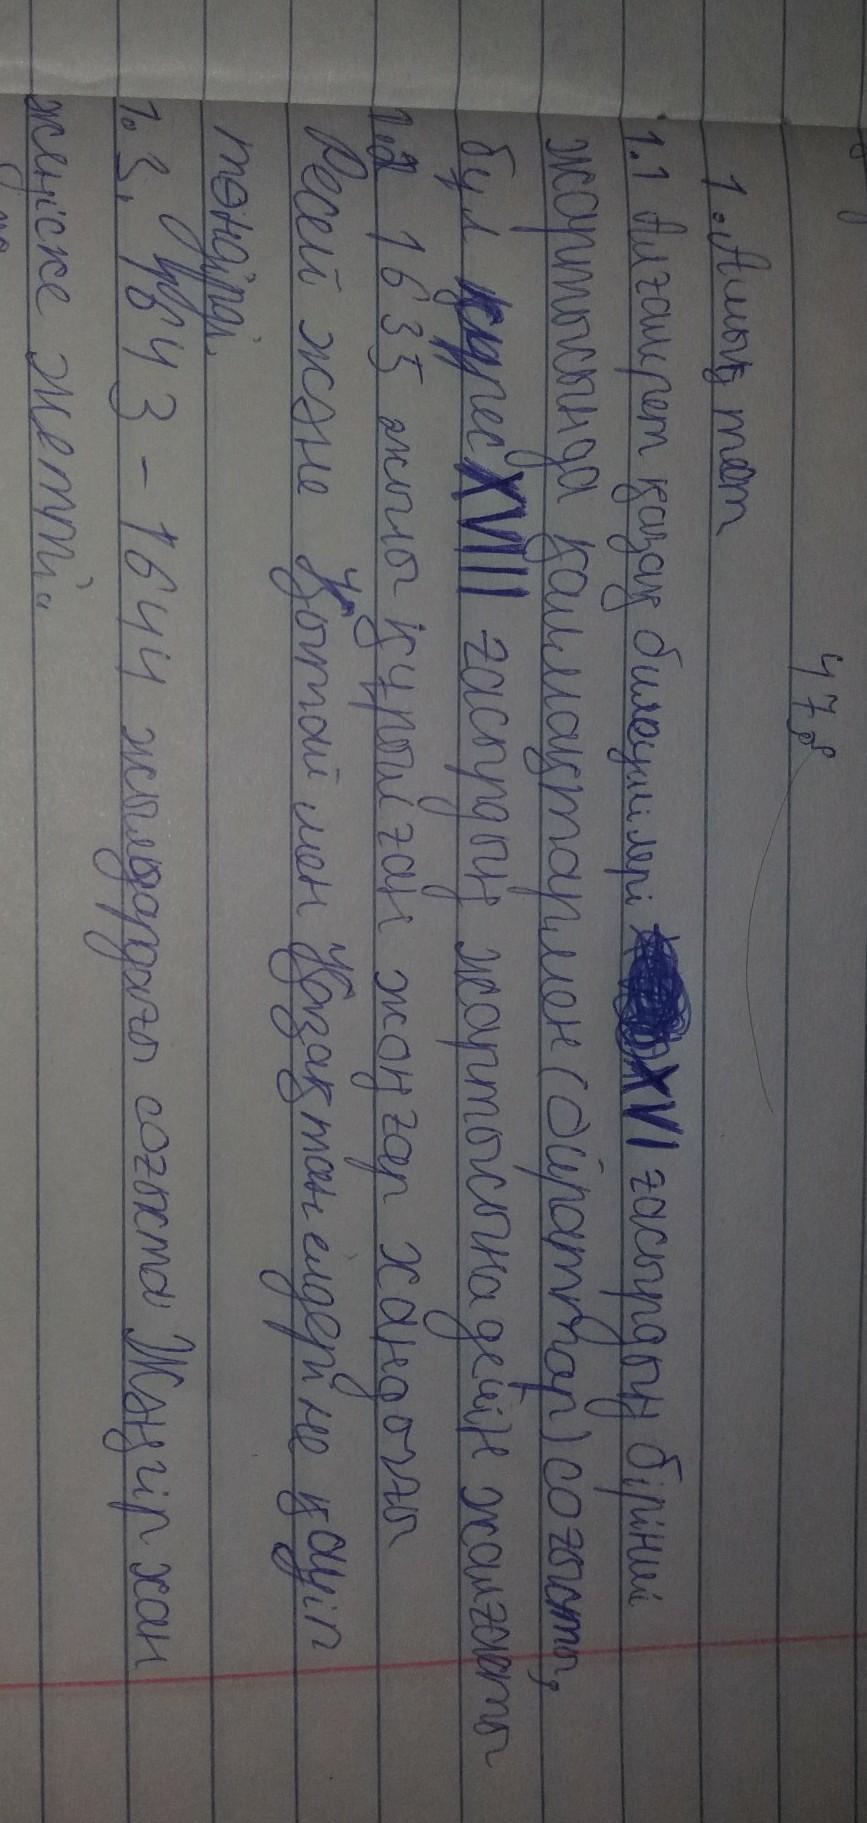 478
1. Ашық тест
1.1 Алғашрет қазақ билеушілері XVI ғасырдың бірінші
жартысында қалмақтармен (ойраттар) соғысты,
бұл күрес XVIII ғасырдың жартысына дейін жалғасты
1.2 1635 жылы құрылған жоңғар хандығы
Ресей және Қытай мен Қазақстан елдеріне қауіп
төндірді.
1.3. 1643 - 1644 жылдардағы соғыста Жәңгір хан
жеңіске жетті.